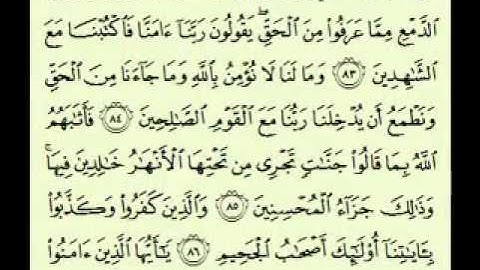 ٱلدَّمْعِ مِمَّا عَرَفُوا۟ مِنَ ٱلْحَقِّ ۖ يَقُولُونَ رَبَّنَآ ءَامَنَّا فَٱكْتُبْنَا مَعَ
ٱلشَّـٰهِدِينَ ٨٣ وَمَا لَنَا لَا نُؤْمِنُ بِٱللَّهِ وَمَا جَآءَنَا مِنَ ٱلْحَقِّ
وَنَطْمَعُ أَن يُدْخِلَنَا رَبُّنَا مَعَ ٱلْقَوْمِ ٱلصَّـٰلِحِينَ ٨٤ فَأَثَـٰبَهُمُ
ٱللَّهُ بِمَا قَالُوا۟ جَنَّـٰتٍ تَجْرِى مِن تَحْتِهَا ٱلْأَنْهَـٰرُ خَـٰلِدِينَ فِيهَا ۚ
وَذَٰلِكَ جَزَآءُ ٱلْمُحْسِنِينَ ٨٥ وَٱلَّذِينَ كَفَرُوا۟ وَكَذَّبُوا۟
بِـَٔايَـٰتِنَآ أُو۟لَـٰٓئِكَ أَصْحَـٰبُ ٱلْجَحِيمِ ٨٦ يَـٰٓأَيُّهَا ٱلَّذِينَ ءَامَنُوا۟